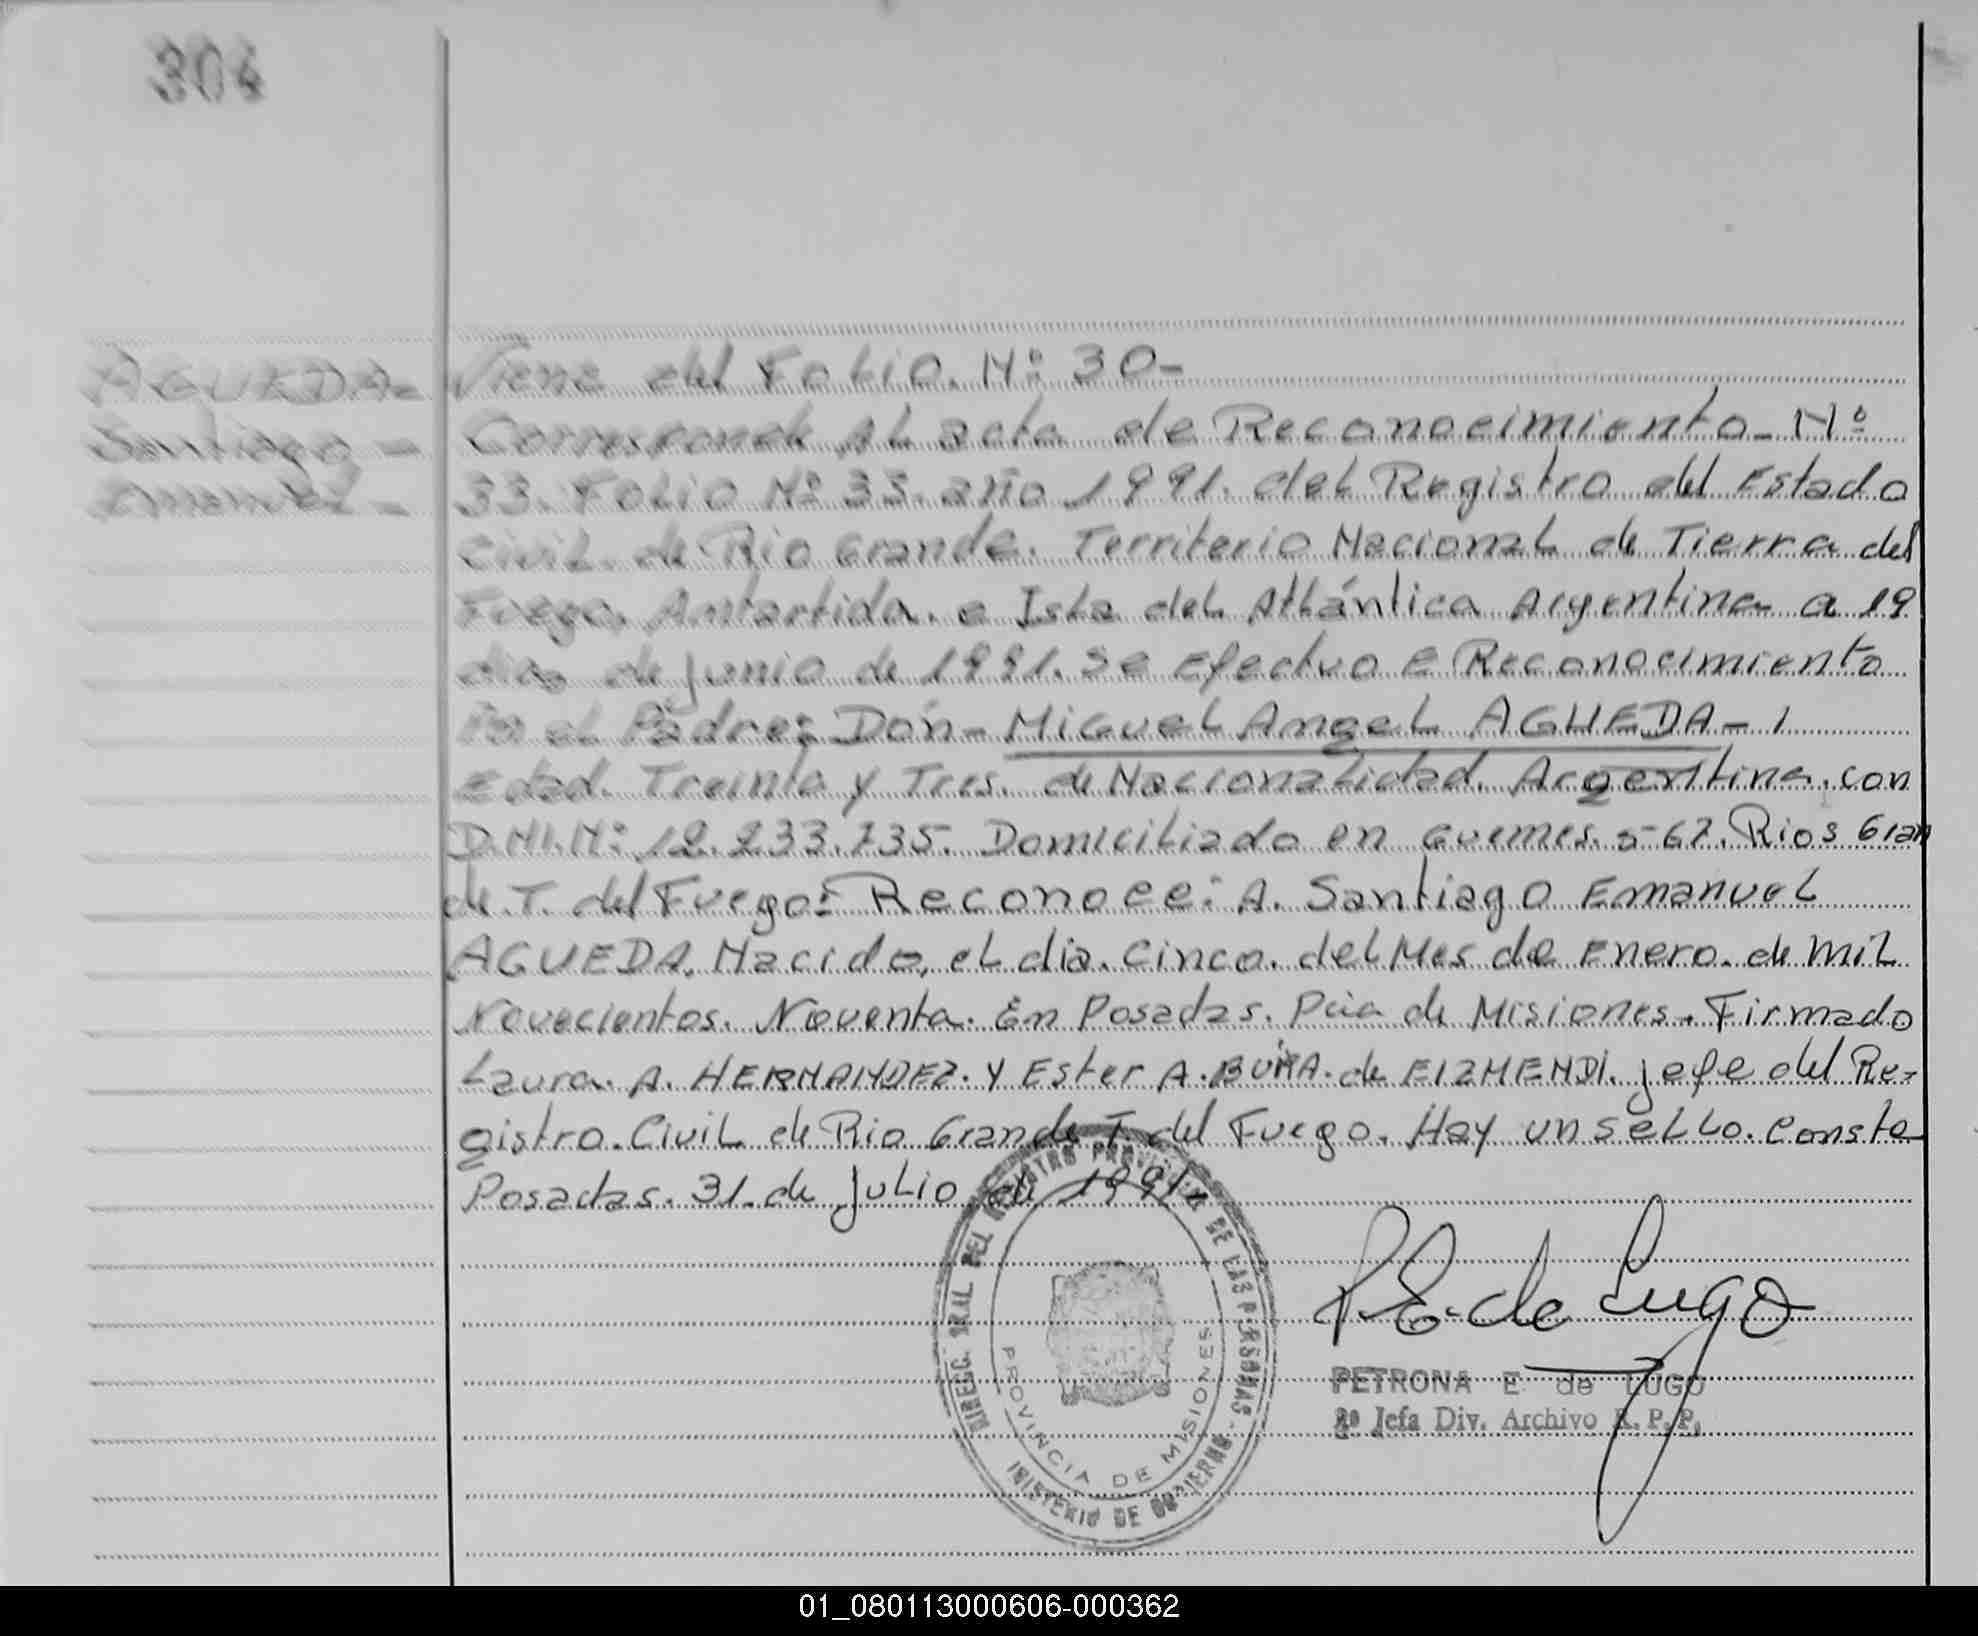 304
AGUEDA-
Santiago -
Emanuel -
Viene del Folio. Nº 30-
Corresponde Al acta de Reconocimiento- Nº
33. Folio Nº 33. año 1991. del Registro del Estado
Civil. de Rio Grande. Territorio Nacional de Tierra del
Fuego. Antartida. e Isla del Atlántica Argentina a 19
dias de junio de 1991. se Efectuo E Reconocimiento
el Padre; Don- Miguel Angel AGUEDA-
Edad. Treinta y Tres. de Nacionalidad. Argentina. con
D.NI.Nº 12.233.735. Domiciliado en Guemes. 567. Rios Gran
de T. del Fuego: Reconoce: A. Santiago Emanuel
AGUEDA. Nacido, el dia. Cinco. del Mes de Enero. de Mil
Novecientos. Noventa. En Posadas. Pcia de Misiones. Firmado
Laura. A. HERNANDEZ. y Ester A. de EIZMENDI. jefe del Re-
gistro. Civil de Rio Grande T. del Fuego. Hay un sello. Conste
Posadas. 31. de julio de 1991.
DIREC. GRAL DEL REGISTRO PROVINCIAL DE LAS PERSONAS
PROVINCIA DE MISIONES
MINISTERIO DE GOBIERNO
P. E. de Lugo
PETRONA E de LUGO
2º Jefa Div. Archivo R. P. P.
01_080113000606-000362